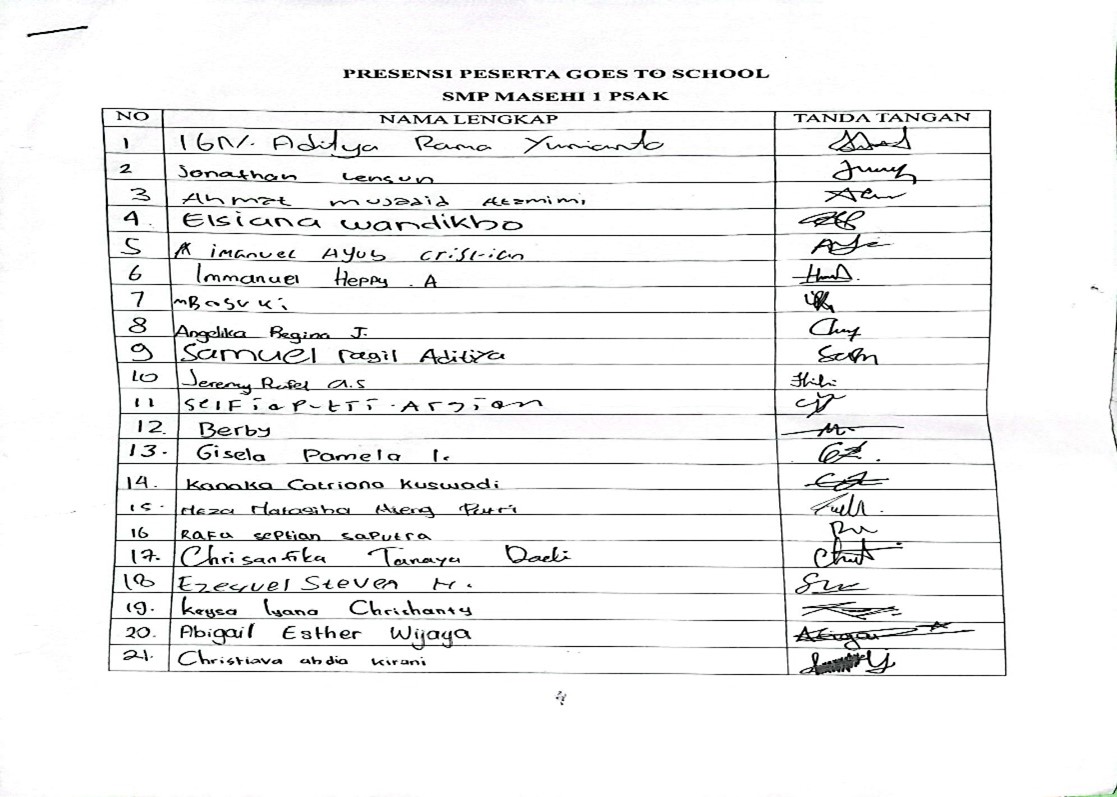 PRESENSI PESERTA GOES TO SCHOOL
SMP MASEHI 1 PSAK
NO NAMA LENGKAP TANDA TANGAN
1 IGN. Aditya Rama Yunianto
2 Jonathan Lensun
3 Ahmat mujadid Atamimi
4. Elsiana wandikbo
5 imanuel Ayub cristian
6 Immanuel Heppy . A
7 mBasuki
8 Angelika Regina J.
9 Samuel ragil Aditiya
10 Jeremy Rafel a.s
11 selfia putri
12. Berby
13. Gisela Pamela I.
14. Kanaka Catriona Kuswadi
15. Putri
16 Rafa septian saputra
17. Chrisantika Tanaya Daeli
18 Ezequel Steven H.
19. keysa Iyana Chrichanty
20. Abigail Esther Wijaya Abigail
21. Christiava abdia kirani
4